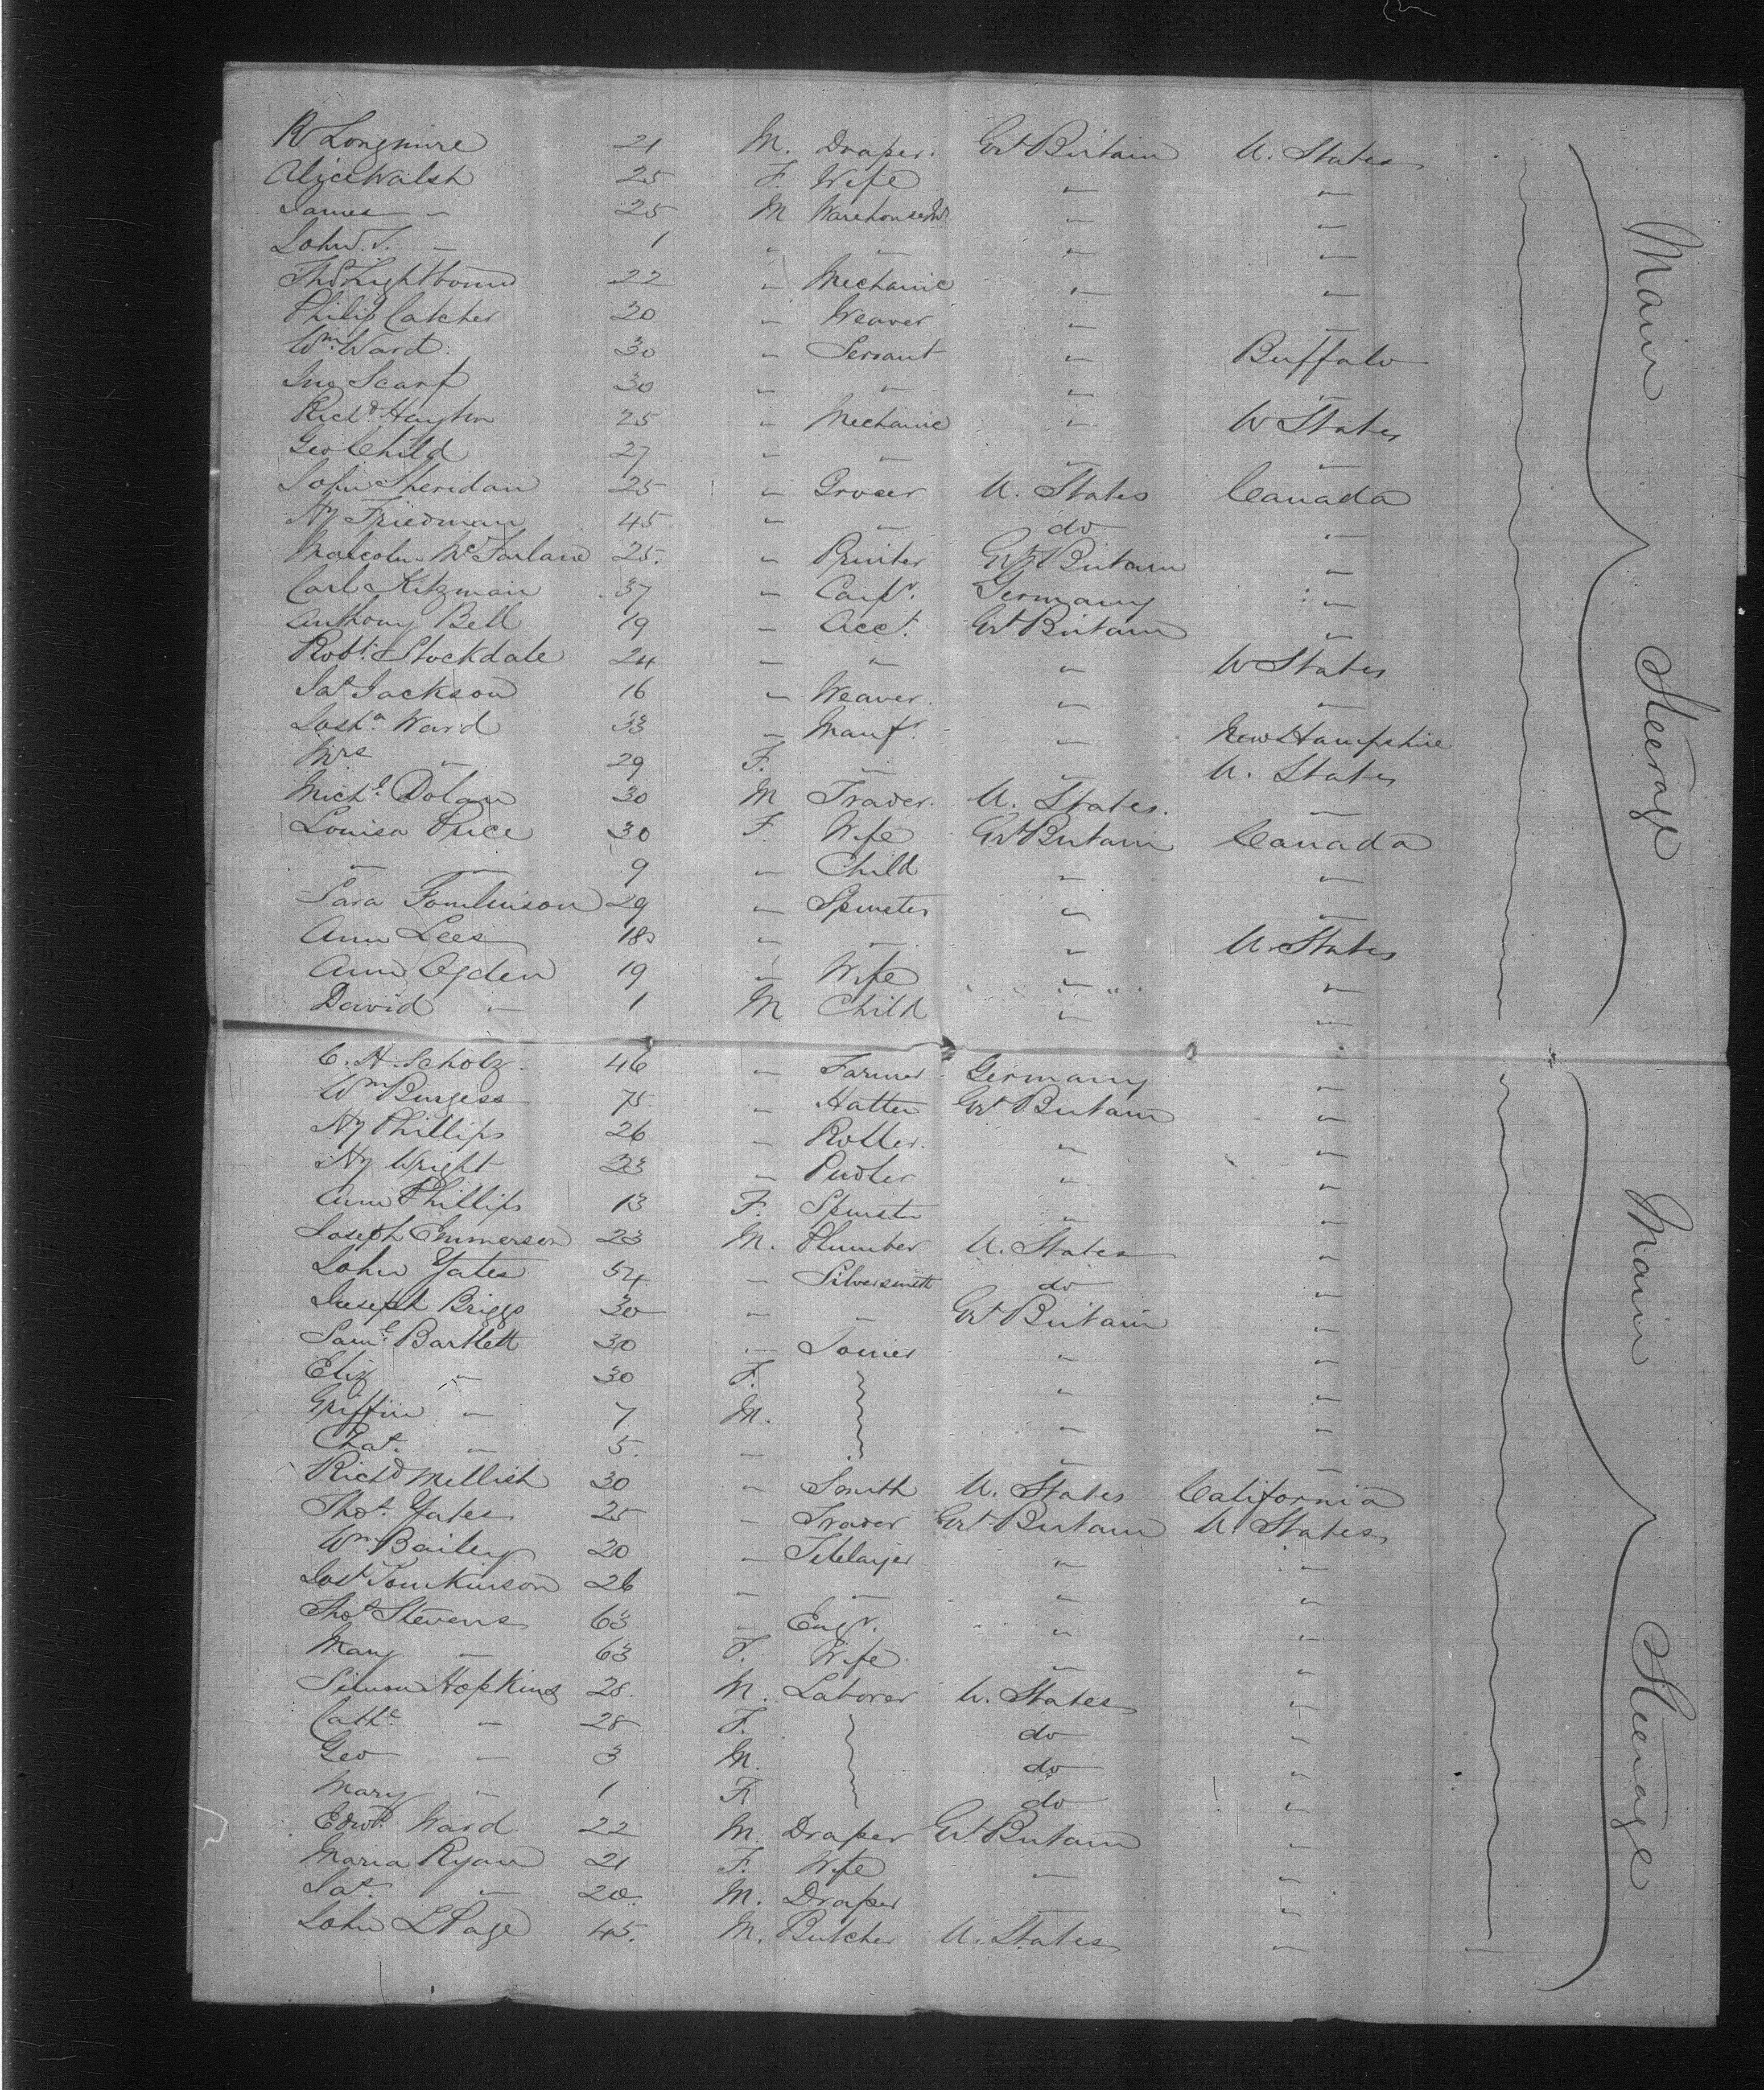 R Longmire 21 M. Draper. Grt Britain U. States
Alice Walsh 25 F. Wife " "
James " 25 M Warehousem " "
John T. " 1 " " " "
Thos Lightbown 22 " Mechanic " "
Philip Catcher 20 " Weaver " "
Wm Ward. 30 " Servant " Buffalo
Jno Scarf 30 " " " "
Richd Hayton 25 " Mechanic " U States
Geo Child 27 " " " "
John Sheridan 25 " Grocer U. States Canada
Hy Friedman 45 " " do "
Malcolm McFarlane 25. " Printer Grt Britain "
Carl Kitzman 37 " Carpr. Germany "
Anthony Bell 19 " Acct. Grt Britain "
Robt. Stockdale 24 " " " U States
Jas Jackson 16 " Weaver. " "
Josha Ward 33 " Manfr. " New Hampshire
Mrs " 29 F. " " U. States
Michl. Dolan 30 M Trader. U. States. "
Louisa Price 30 F. Wife Grt Britain Canada
" " 9 " Child " "
Sara Tomlinson 29 " Spinster " "
Ann Lees 18 " " " U. States
Ann Ogden 19 " Wife " "
David " 1 M Child " "
C. H. Scholz. 46 " Farmer Germany "
Wm Burgess 75. " Hatter Grt Britain "
Hy Phillips 26 " Roller. " "
Hy Wright 23 " Pudler " "
Ann Phillips 13 F. Spinster " "
Joseph Emmerson 23 M. Plumber U. States "
John Yates 54 " Silversmith do "
Joseph Briggs 30 " " Grt Britain "
Saml. Bartlett 30 " Joiner " "
Eliz " 30 F. " "
Griffin " 7 M. " "
Chas. " 5. " " "
Richd Mellish 30 " Smith U. States California
Thos. Yates 25 " Trader Grt Britain U. States
Wm Bailey 20 " Tilelayer " "
Jas Tomkinson 26 " " " "
Thos Stevens 63 " Engr. " "
Mary " 63 F. Wife " "
Simon Hopkins 28. M. Laborer U. States "
Cathe. " 28 F. do "
Geo " 3 M. do "
Mary " 1 F. do "
Edwd. Ward. 22 M. Draper Grt Britain "
Maria Ryan 21 F. Wife " "
Jas. " 20. M. Draper " "
John L Page 45. M. Butcher U. States " "
Main Steerage
Main Steerage